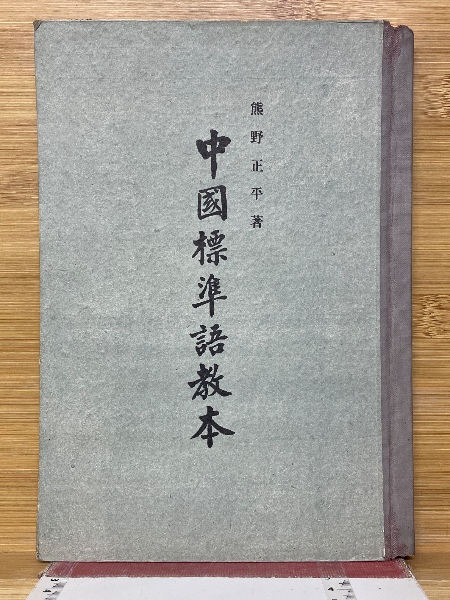 熊野正平著
中國標準語教本